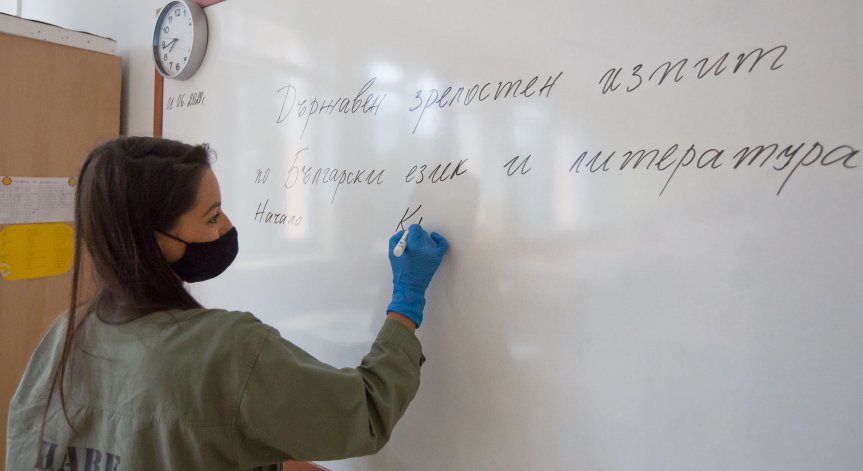 01 06 2020г.
Държавен зрелостен изпит
по Български език и литература
Начало К
HABE